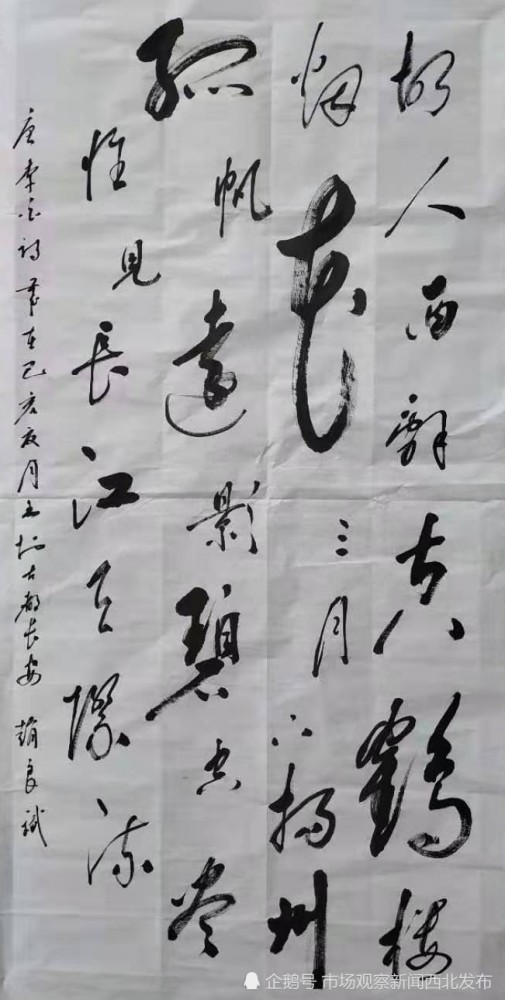 故人西辭黄鶴楼
烟花三月下揚州
孤帆遠影碧空尽
惟見長江天際流
唐李白詩歲在己亥夏月書於古都长安 趙良斌
企鹅号 市场观察新闻西北发布